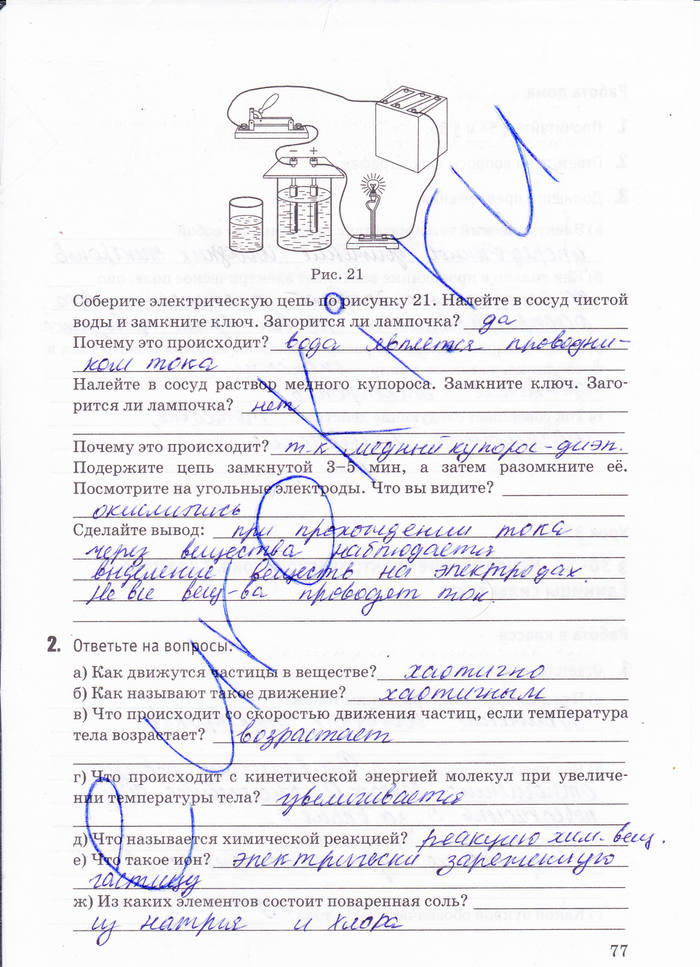 − +
Рис. 21
Соберите электрическую цепь по рисунку 21. Налейте в сосуд чистой
воды и замкните ключ. Загорится ли лампочка? да
Почему это происходит? вода является проводни-
ком тока
Налейте в сосуд раствор медного купороса. Замкните ключ. Заго-
рится ли лампочка? нет
Почему это происходит? т.к медный купорос-диэл.
Подержите цепь замкнутой 3–5 мин, а затем разомкните её.
Посмотрите на угольные электроды. Что вы видите?
окислились
Сделайте вывод: при прохождении тока
через вещества наблюдается
выделение веществ на электродах.
Не все вещ-ва проводят ток.
2. Ответьте на вопросы.
а) Как движутся частицы в веществе? хаотично
б) Как называют такое движение? хаотичным
в) Что происходит со скоростью движения частиц, если температура
тела возрастает? возрастает
г) Что происходит с кинетической энергией молекул при увеличе-
нии температуры тела? увеличивается
д) Что называется химической реакцией? реакцию хим. вещ.
е) Что такое ион? электрически заряженную
частицу
ж) Из каких элементов состоит поваренная соль?
из натрия и хлора
77